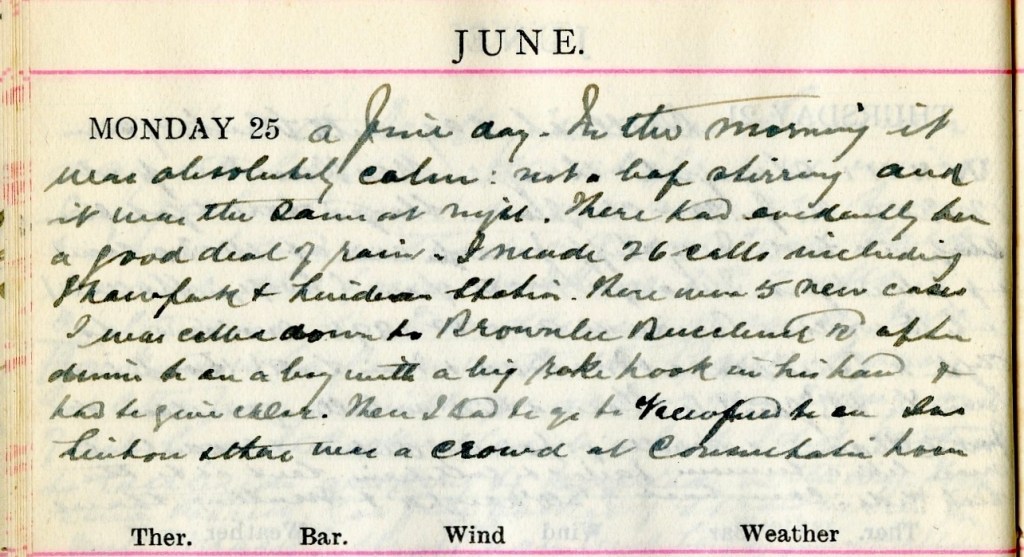 JUNE.
MONDAY 25 a fine day. In the morning it
was absolutely calm: not a leaf stirring and
it was the same at night. There had evidently been
a good deal of rain. I made 26 calls including
& Station. There were 5 new cases
I was called down to Brownlee after
dinner to see a boy with a big hook in his hand &
had to give chlor. Then I had to go to to see
& there was a crowd at Consultation hour
Ther. Bar. Wind Weather